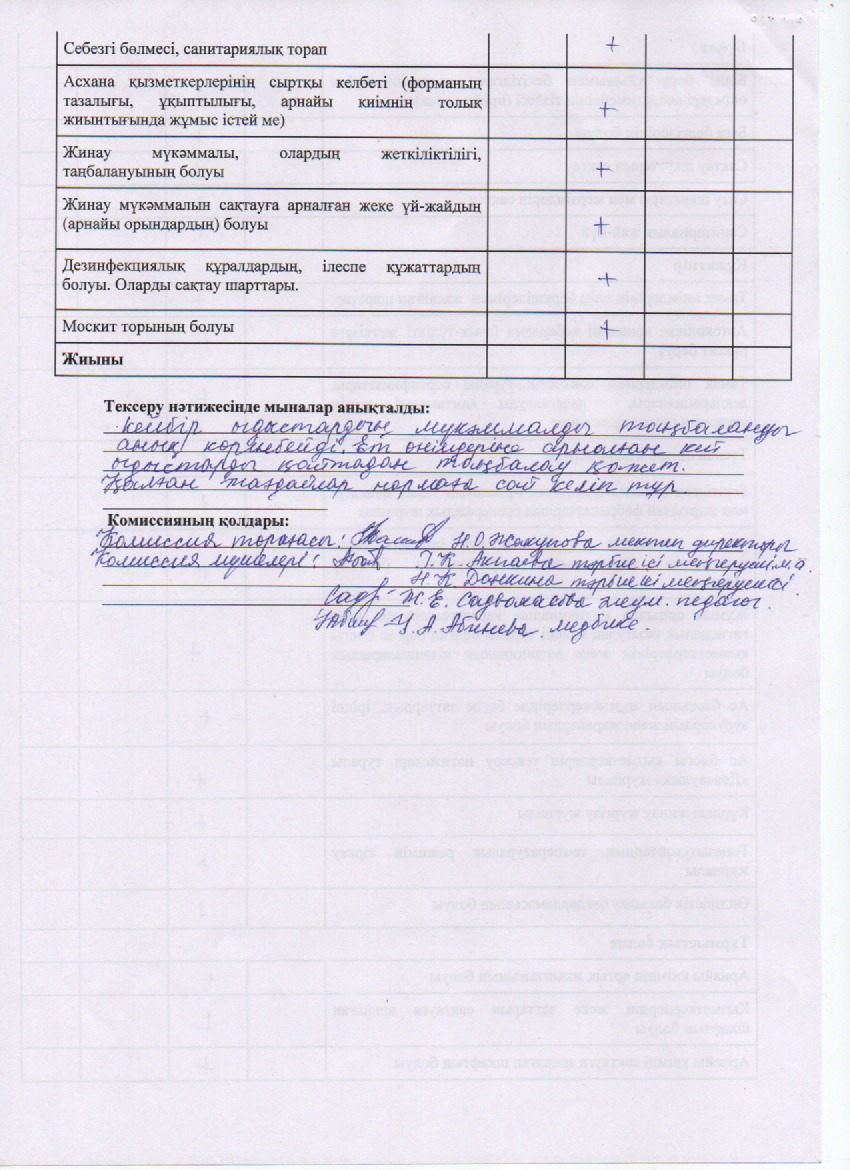 Себезгі бөлмесі, санитариялық торап +
Асхана қызметкерлерінің сыртқы келбеті (форманың
тазалығы, ұқыптылығы, арнайы киімнің толық
жиынтығында жұмыс істей ме) +
Жинау мүкәммалы, олардың жеткіліктілігі,
таңбалануының болуы +
Жинау мүкәммалын сақтауға арналған жеке үй-жайдың
(арнайы орындардың) болуы +
Дезинфекциялық құралдардың, ілеспе құжаттардың
болуы. Оларды сақтау шарттары. +
Москит торының болуы +
Жиыны
Тексеру нәтижесінде мыналар анықталды:
Кейбір ыдыстардың мүкәммалды таңбаланды
анық көрінбейді. Ет өнімдеріне арналған кей
ыдыстарды қайтадан таңбалау қажет.
Қалған талдайлар нормаға сай келіп тұр.
Комиссияның қолдары:
Комиссия төрағасы: Н.О Жакупова мектеп директоры
Комиссия мүшелері: Г.К. Акпаева тәрбие ісі меңгерушім.а.
Н.К Донкина тәрбие ісі меңгерушісі
Ж.Е. Садвокасова әлеум. педагог.
А. Абенева. медбике